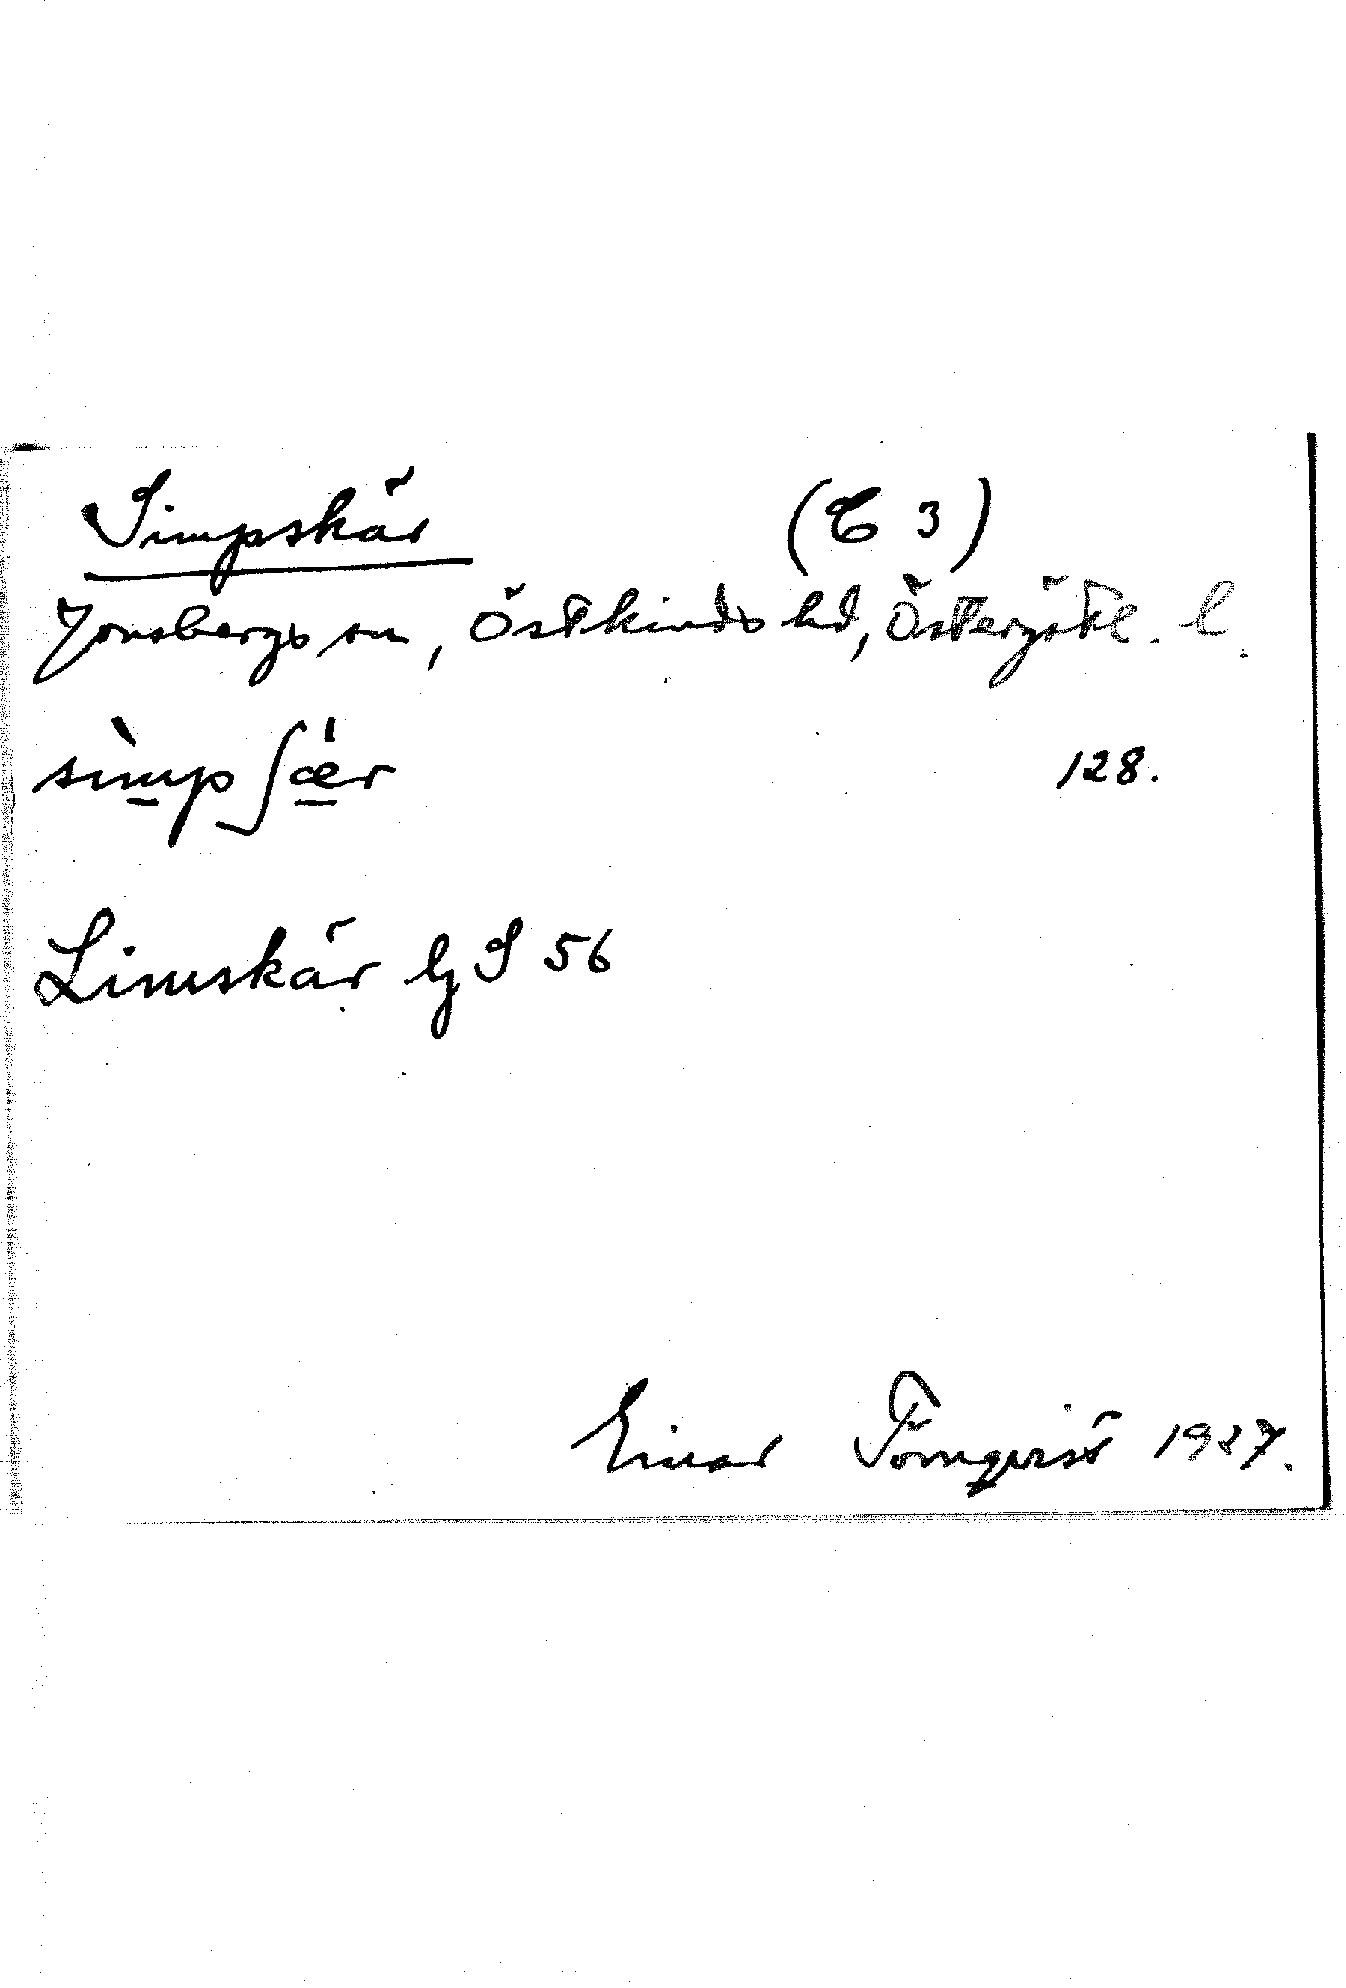 Simpskär (C 3)
Jonsbergs sn, Östkinds hd, Östergötl. l.
sìmpʃǽr 128.
Limskär Gj S 56
Einar Törnqvist 1927.